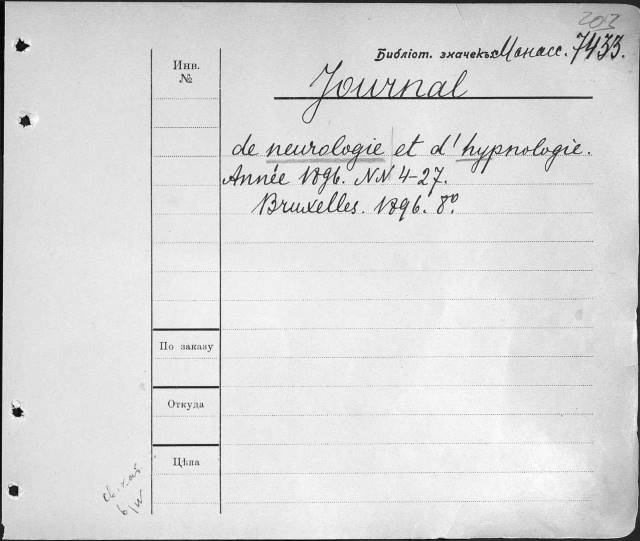 203
Библіот. значекъ Монасс. 7433.
Инв.
№
Journal
de neurologie et d'hypnologie.
Année 1896. NN 4-27.
Bruxelles. 1896. 8º.
По заказу
Откуда
Цѣна